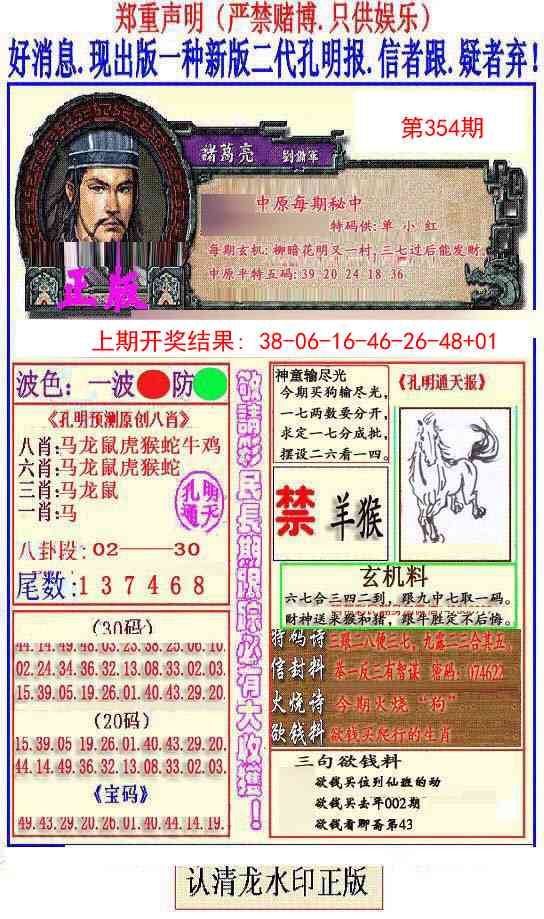 郑重声明（严禁赌博.只供娱乐）
好消息.现出版一种新版二代孔明报.信者跟.疑者弃！
第354期
諸葛亮
中原每期秘中
特码供:单 小 红
每期玄机:柳暗花明又一村,三七过后能发财.
中原平特五码:39 20 24 18 36
正版
上期开奖结果: 38-06-16-46-26-48+01
波色：一波 防
《孔明预测原创八肖》
八肖:马龙鼠虎猴蛇牛鸡
六肖:马龙鼠虎猴蛇
三肖:马龙鼠
一肖:马
孔明
通天
八卦段:02——30
尾数:137468
(30码)
44.14.49.48.03.23.38.25.06.10.
02.24.34.36.32.13.08.33.02.03.
15.39.05.19.26.01.40.43.29.20.
(20码)
15.39.05 19.26.01.40.43.29.20.
44.14.49.36.32.13.08.33.02.03.
《宝码》
49.43.29.20.26.01.40.44.14.19.
敬請彩民長期跟踪必有大收獲！
神童输尽光
今期买狗输尽光，
一七两数要分开，
求定一七分成批，
摆设二六看一四。
《孔明通天报》
禁 羊猴
玄机料
六七合三四二到，跟九中七取一码。
财神送来猴和猪，跟牛胜定不后悔。
特码诗 三跟二八便三七，九露二二合其五。
信封料 举一反三有智谋 密码：074622
火烧诗 今期火烧“狗”
欲钱料 欲钱买爬行的生肖
三句欲钱料
欲钱买位到仙班的动
欲钱买去年002期
欲钱看聊斋第43
认清龙水印正版